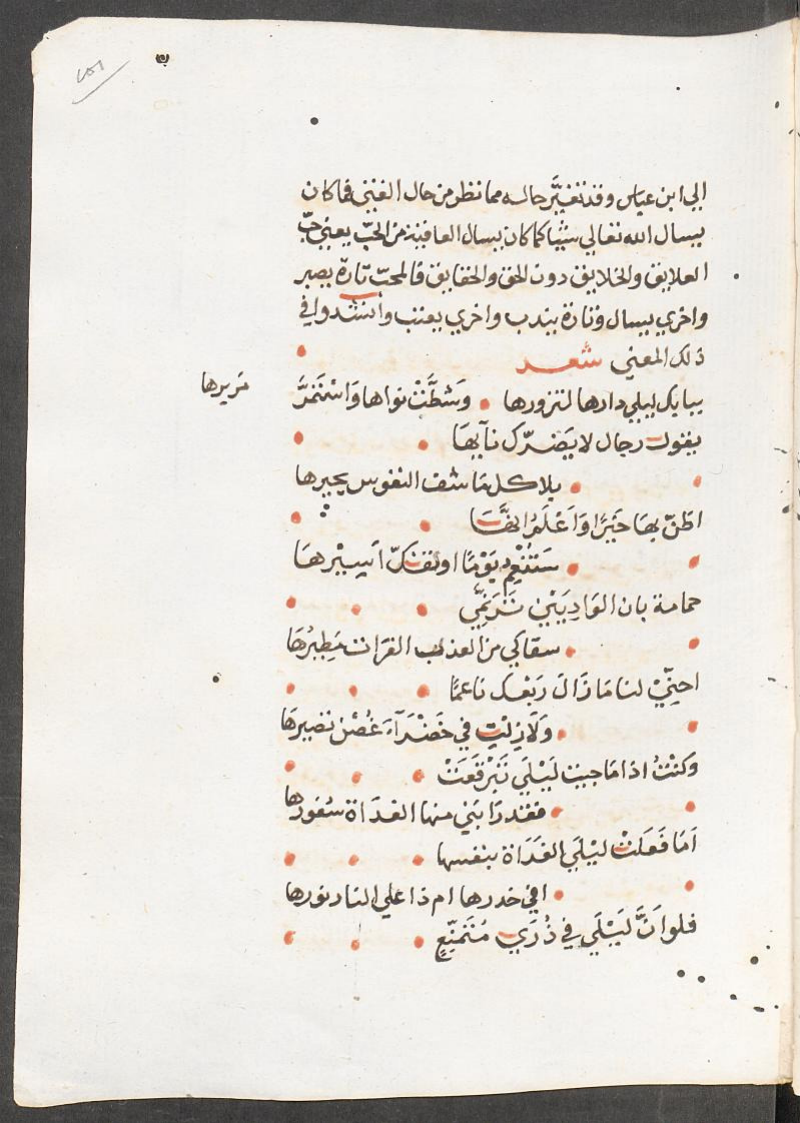 الي ابن عباس وقد تغيَّر حاله مما نظر من حال الفتي فما كان
يسال الله تعالي شيئا كما كان يسال العافية من الحبّ يعني حبّ
العلايق والخلايق دون الحق والحقايق فالمحبّ تارة يصبر
واخري يسال وتارة يندب واخري يعتب وانشدوا في
ذلك المعني شعـر
ببابك ليلي دارها لتزورها وَشطَّتْ نواها وَاسْتَمَرَّ
مَريرها
يقولت رجال لا يَضرّك نآيهَا
بلا كل ما شف النفوس يحيرها
اظنّ بهَا خَيرًا وَاَعْلَمْ انهَّا
سَتُنْعِم يَوْمًا او يفكّ اَسِيْرهَا
حمامة بان الوَادِيَيْنِ تَرَنَّمِي
سقاكي من العذب الفرات مَطِيرُهَا
احنِّيْ لنا مَا زَالَ رَبْعك ناعمًا
وَلَا زِلتِ في خَضْرَآءَ غُصْن نضيرهَا
وكنتُ اذا مَا جيت لَيْلَي تَبَرْقَعَتْ
فقد رَابَني منها الغدَاة سُفورها
اَمَا فَعَلتْ ليْلَي الغَدَاة بنفسها
افي خدرها ام ذا علي النار نورها
فلو اَنَّ لَيْلَي فِي ذُرَي مُتَمَنِّعٍ